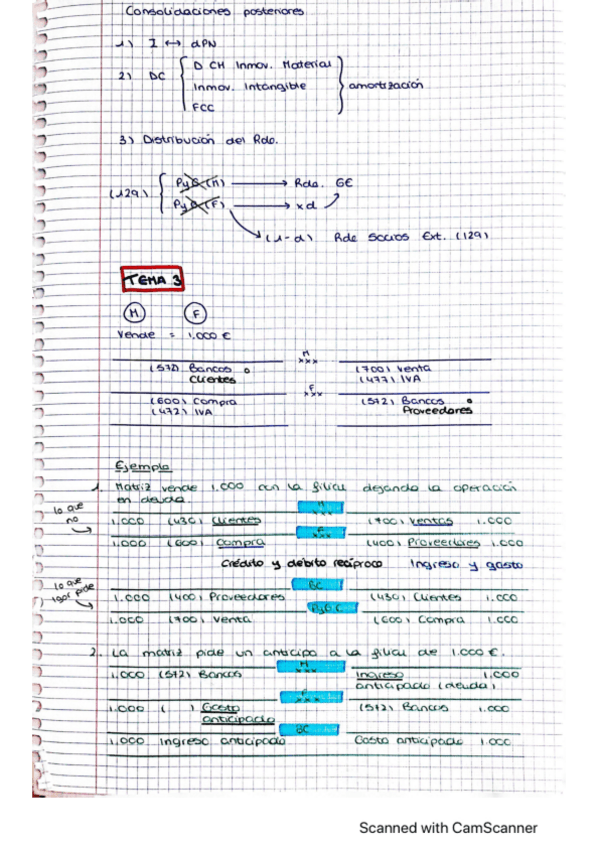 Consolidaciones posteriores
1) I ↔ dPN
2) DC { D CH Inmov. Material
Inmov. Intangible } amortización
FCC
3) Distribución del Rdo.
(129) { PyG (M) → Rdo. GE
PyG (F) → x d
(1-d) Rdo Socios Ext. (129)
TEMA 3
M F
Vende = 1.000 €
M
xxx
(572) Bancos o (700) Venta
Clientes (477) IVA
F
xxx
(600) Compra (572) Bancos o
(472) IVA Proveedores
Ejemplo
1. Matriz vende 1.000 con la filial dejando la operación
en deuda.
lo que no →
M
1.000 (430) Clientes (700) Ventas 1.000
F
1.000 (600) Compra (400) Proveedores 1.000
Crédito y débito recíproco Ingreso y gasto
lo que Igor pide →
BC
1.000 (400) Proveedores (430) Clientes 1.000
PyG C
1.000 (700) Venta (600) Compra 1.000
2. La matriz pide un anticipo a la filial de 1.000 €.
M
xxx
1.000 (572) Bancos Ingreso 1.000
anticipado (deuda)
F
xxx
1.000 ( ) Gasto (572) Bancos 1.000
anticipado
BC
1.000 Ingreso anticipado Gasto anticipado 1.000
Scanned with CamScanner